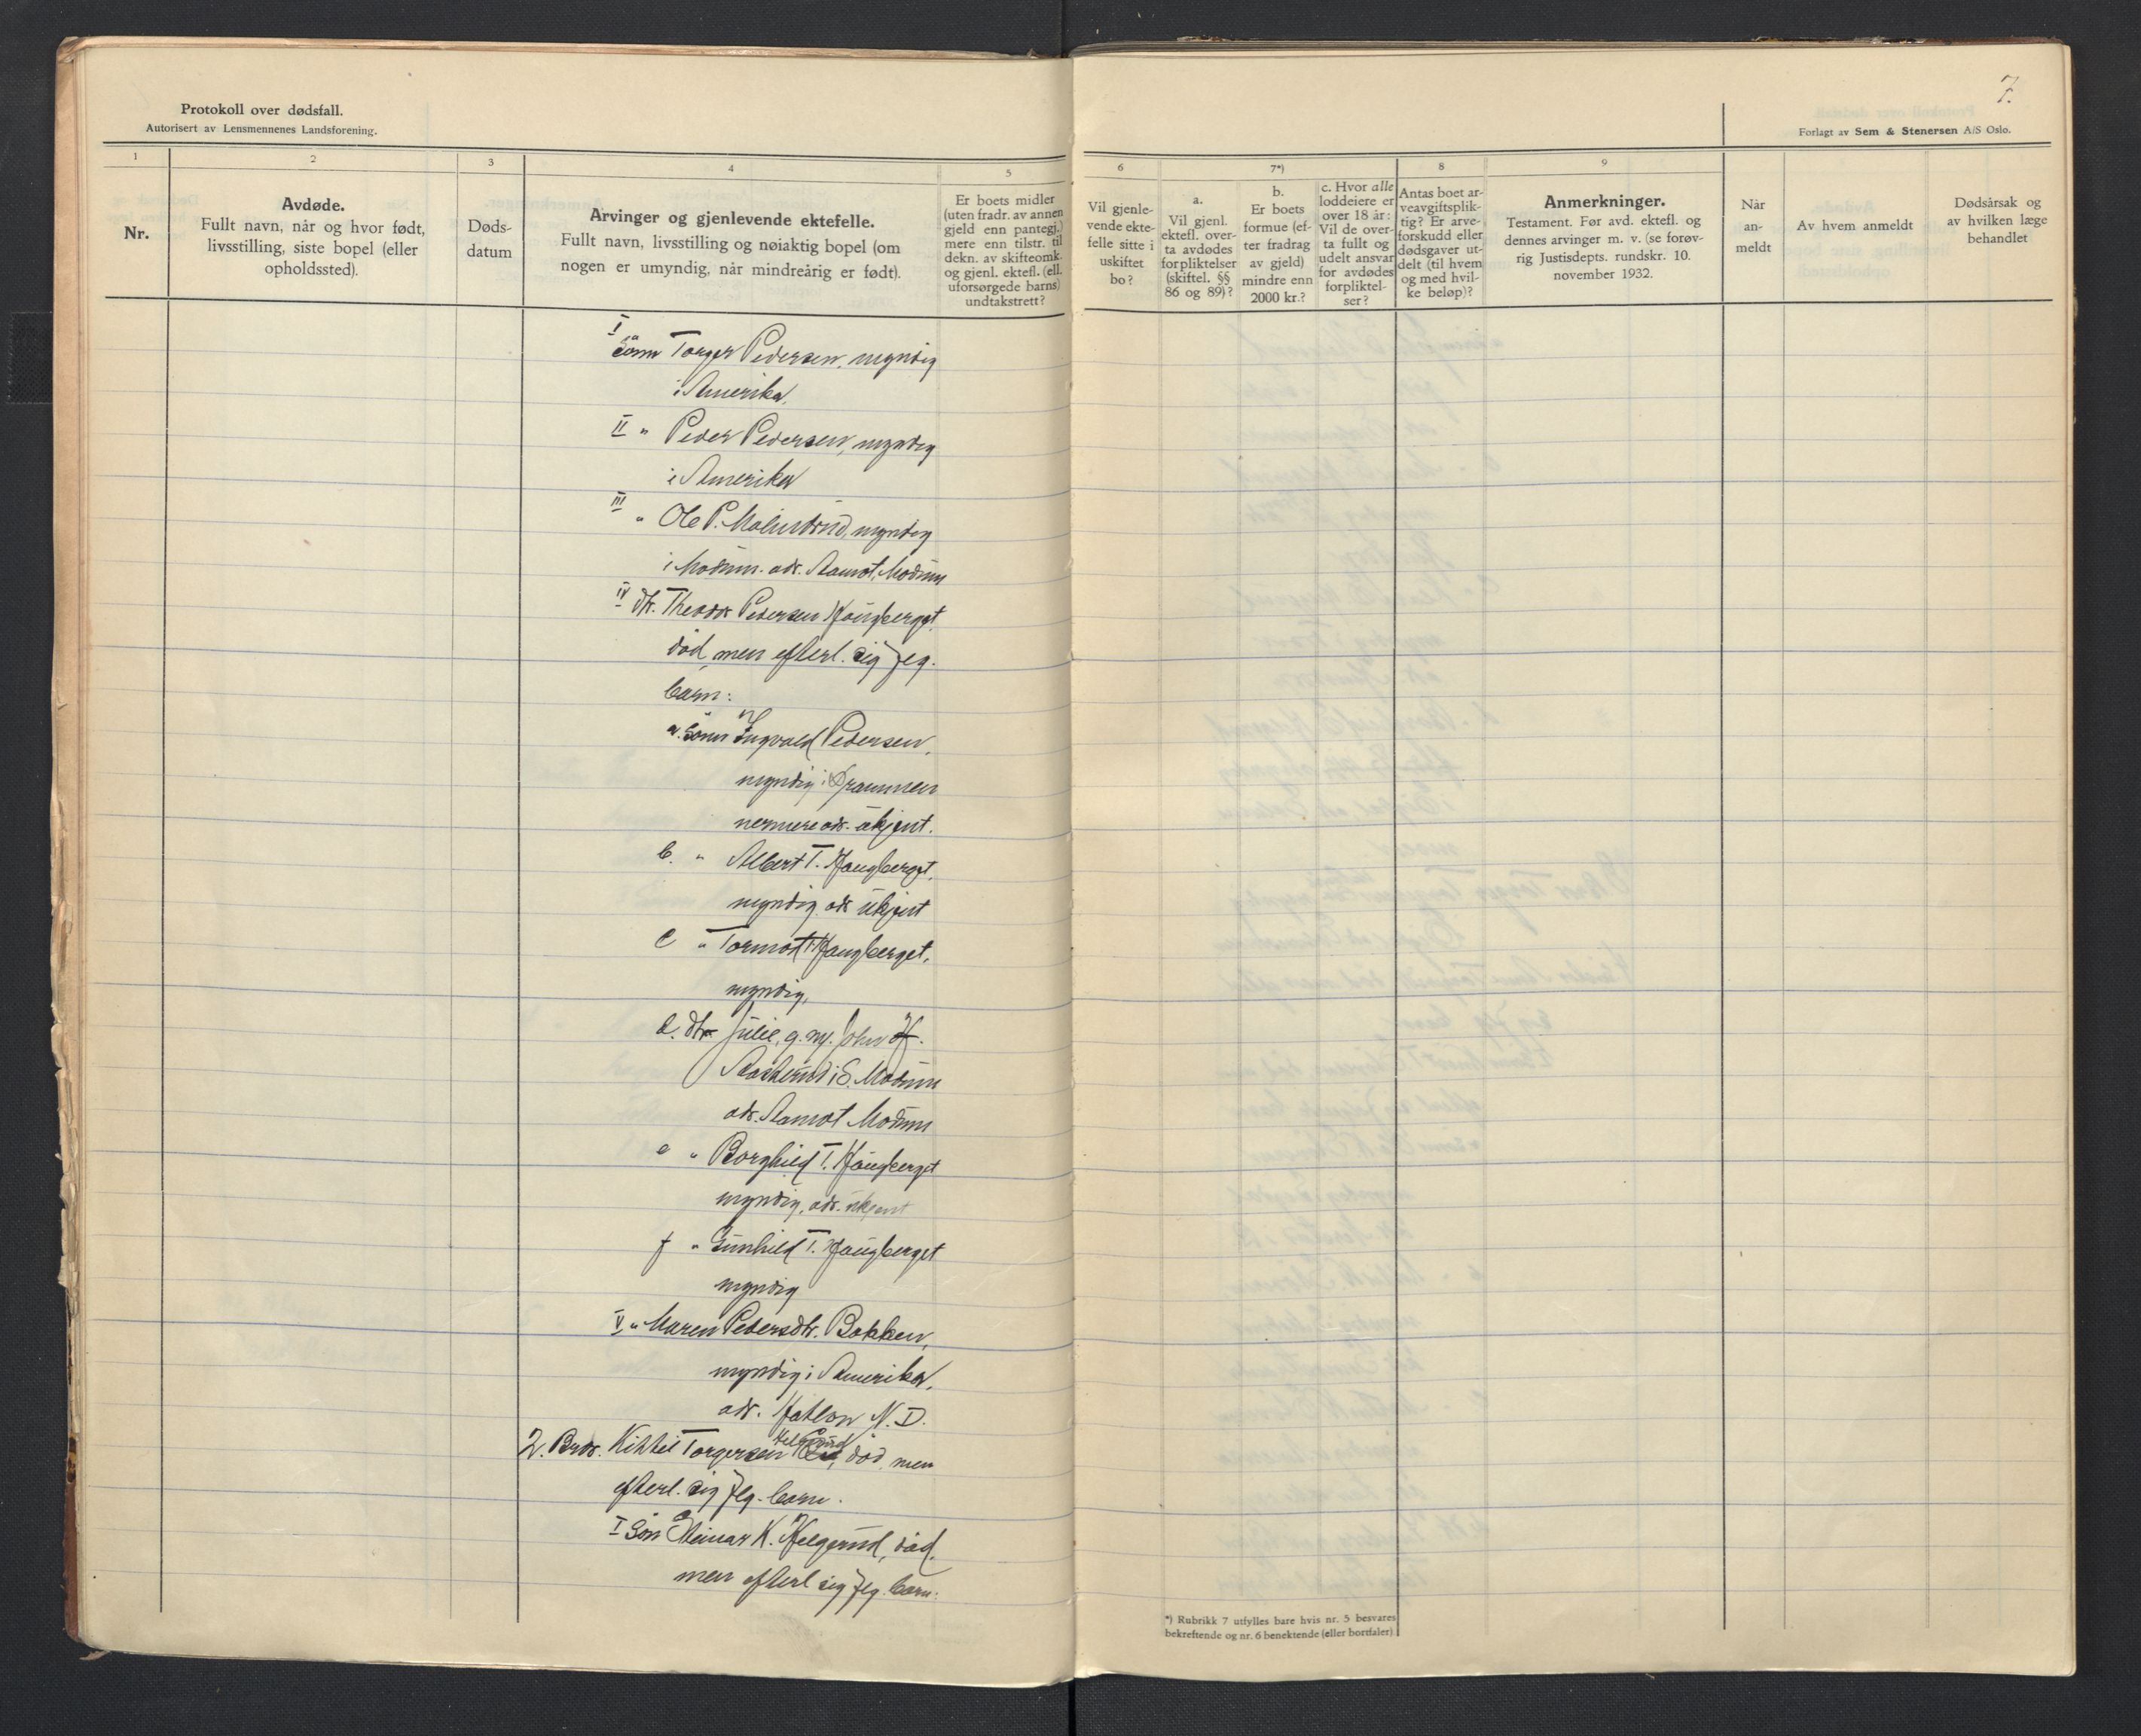 Protokoll over dødsfall.
Autorisert av Lensmennenes Landsforening.
7.
Forlagt av Sem & Stenersen A/S Oslo.
1
2
3
4
5
6
7*)
8
9
Nr.
Avdøde.
Fullt navn, når og hvor født,
livsstilling, siste bopel (eller
opholdssted).
Døds-
datum
Arvinger og gjenlevende ektefelle.
Fullt navn, livsstilling og nøiaktig bopel (om
nogen er umyndig, når mindreårig er født).
Er boets midler
(uten fradr. av annen
gjeld enn pantegj.)
mere enn tilstr. til
dekn. av skifteomk.
og gjenl. ektefl. (ell.
uforsørgede barns)
undtakstrett?
Vil gjenle-
vende ekte-
felle sitte i
uskiftet
bo?
a.
Vil gjenl.
ektefl. over-
ta avdødes
forpliktelser
(skiftel. §§
86 og 89)?
b.
Er boets
formue (ef-
ter fradrag
av gjeld)
mindre enn
2000 kr.?
c. Hvor alle
loddeiere er
over 18 år:
Vil de over-
ta fullt og
udelt ansvar
for avdødes
forpliktel-
ser?
Antas boet ar-
veavgiftsplik-
tig? Er arve-
forskudd eller
dødsgaver ut-
delt (til hvem
og med hvil-
ke beløp)?
Anmerkninger.
Testament. Før avd. ektefl. og
dennes arvinger m. v. (se forøv-
rig Justisdepts. rundskr. 10.
november 1932.
Når
an-
meldt
Av hvem anmeldt
Dødsårsak og
av hvilken læge
behandlet
I
Sønn Torger Pedersen, myndig
i Amerika.
II " Peder Pedersen, myndig
i Amerika
III
" Ole P. myndig
i Modum. adr. Aamot, Modum
IV dtr. Theodor Pedersen Haugberget,
död, men efterl. sig flg.
barn:
a. Sönn Ingvald Pedersen,
myndig i Drammen
nermere adr. ukjent.
b. " Albert T. Haugberget,
myndig adr ukjent
c " Tormod T. Haugberget,
myndig,
d. dtr Julie, g. m. John H.
i S. Modum
adr. Aamot Modum
e " Borghild T. Haugberget
myndig, adr. ukjent
f " Gunhild T. Haugberget
myndig
V " Maren Pedersdtr. Bakken,
myndig i Amerika,
adr. N. D.
2. Bror. Kittil Torgersen Helgerud, död, men
efterl. sig flg. barn.
I Sön Steinar K. Helgerud, död,
men efterl sig flg. barn:
*) Rubrikk 7 utfylles bare hvis nr. 5 besvares
bekreftende og nr. 6 benektende (eller bortfaler)